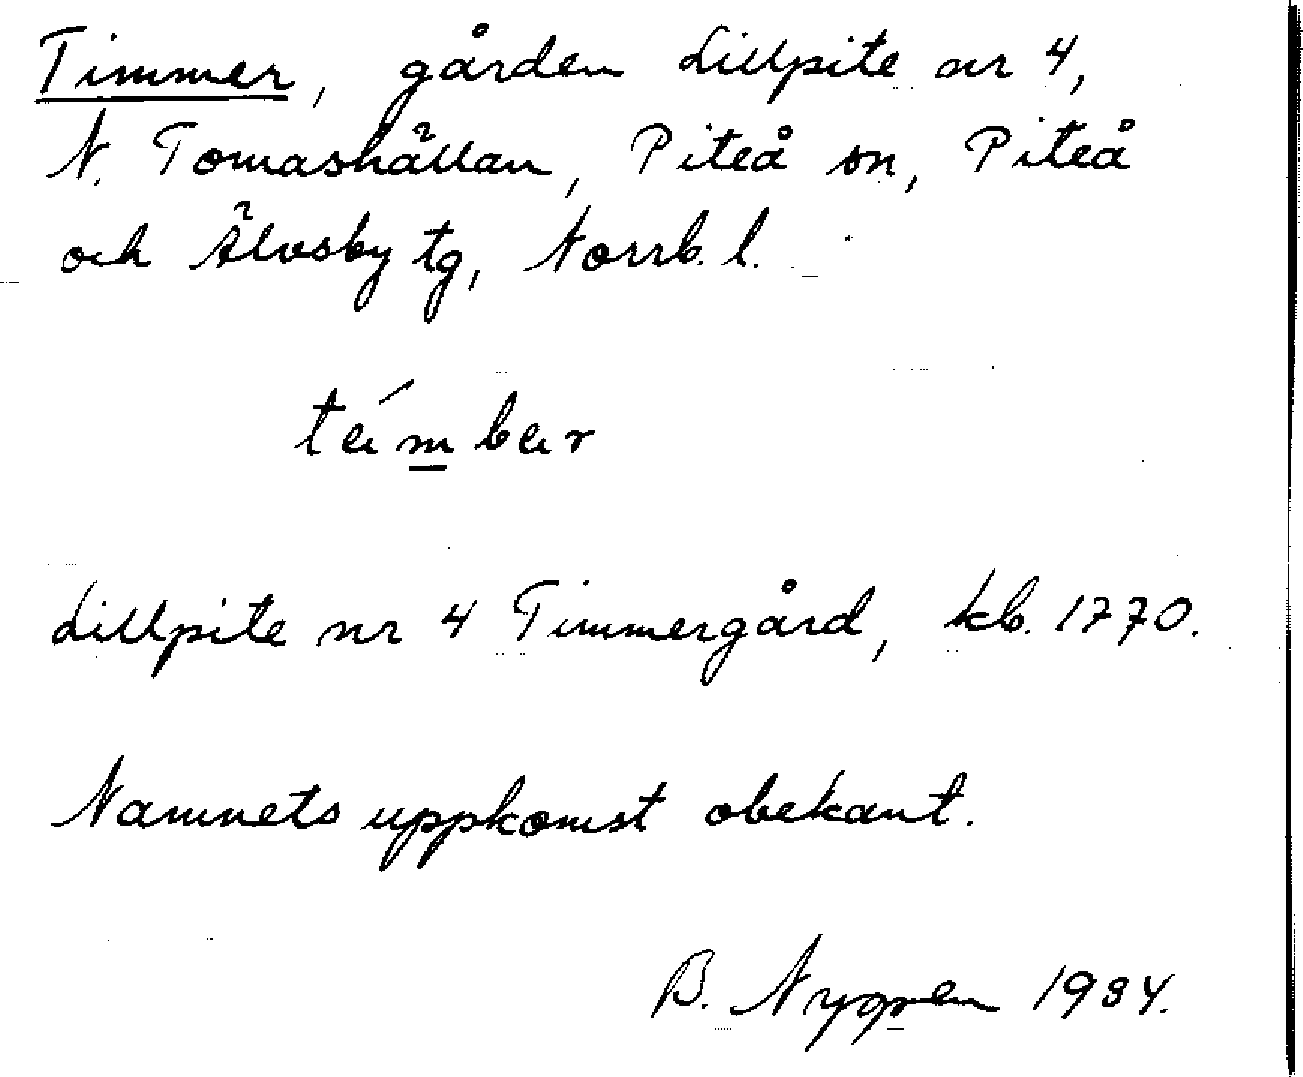 Timmer, gården Lillpite nr 4,
N. Tomashällan, Piteå sn, Piteå
och Älvsby tg, Norrb. l.
Lillpite nr 4 Timmergård, kb. 1770.
Namnets uppkomst obekant.
B. Nygren 1984.